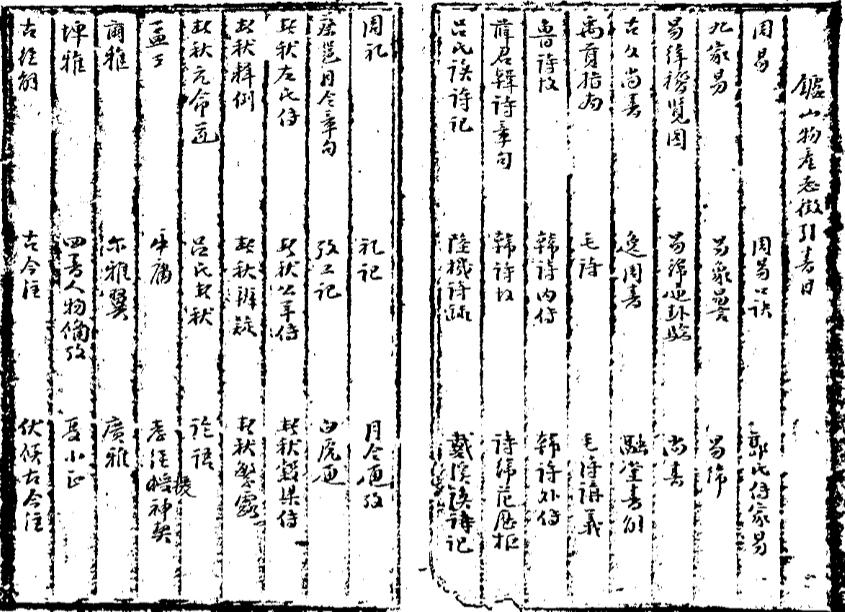 鑪山物產志徵引書目
周易 周易口訣 郭氏傳家易
九家易 易象 易緯
易緯稽覽圖 易緯通卦驗 尚書
古文尚書 逸周書 融堂書解
禹貢指南 毛詩 毛詩講義
魯詩故 韓詩內傳 韓詩外傳
薛君韓詩章句 韓詩故 詩緯氾歷樞
呂氏讀詩記 陸機詩疏 戴溪讀詩記
周礼 礼記 月令通攷
蔡邕月令章句 攷工記 白虎通
春秋左氏傳 春秋公羊傳 春秋穀梁傳
春秋釋例 春秋辨疑 春秋繁露
春秋元命苞 呂氏春秋 論語
孟子 孝經援神契
爾雅 尔雅翼 廣雅
埤雅 四書人物備攷 夏小正
古經解 古今注 伏侯古今注